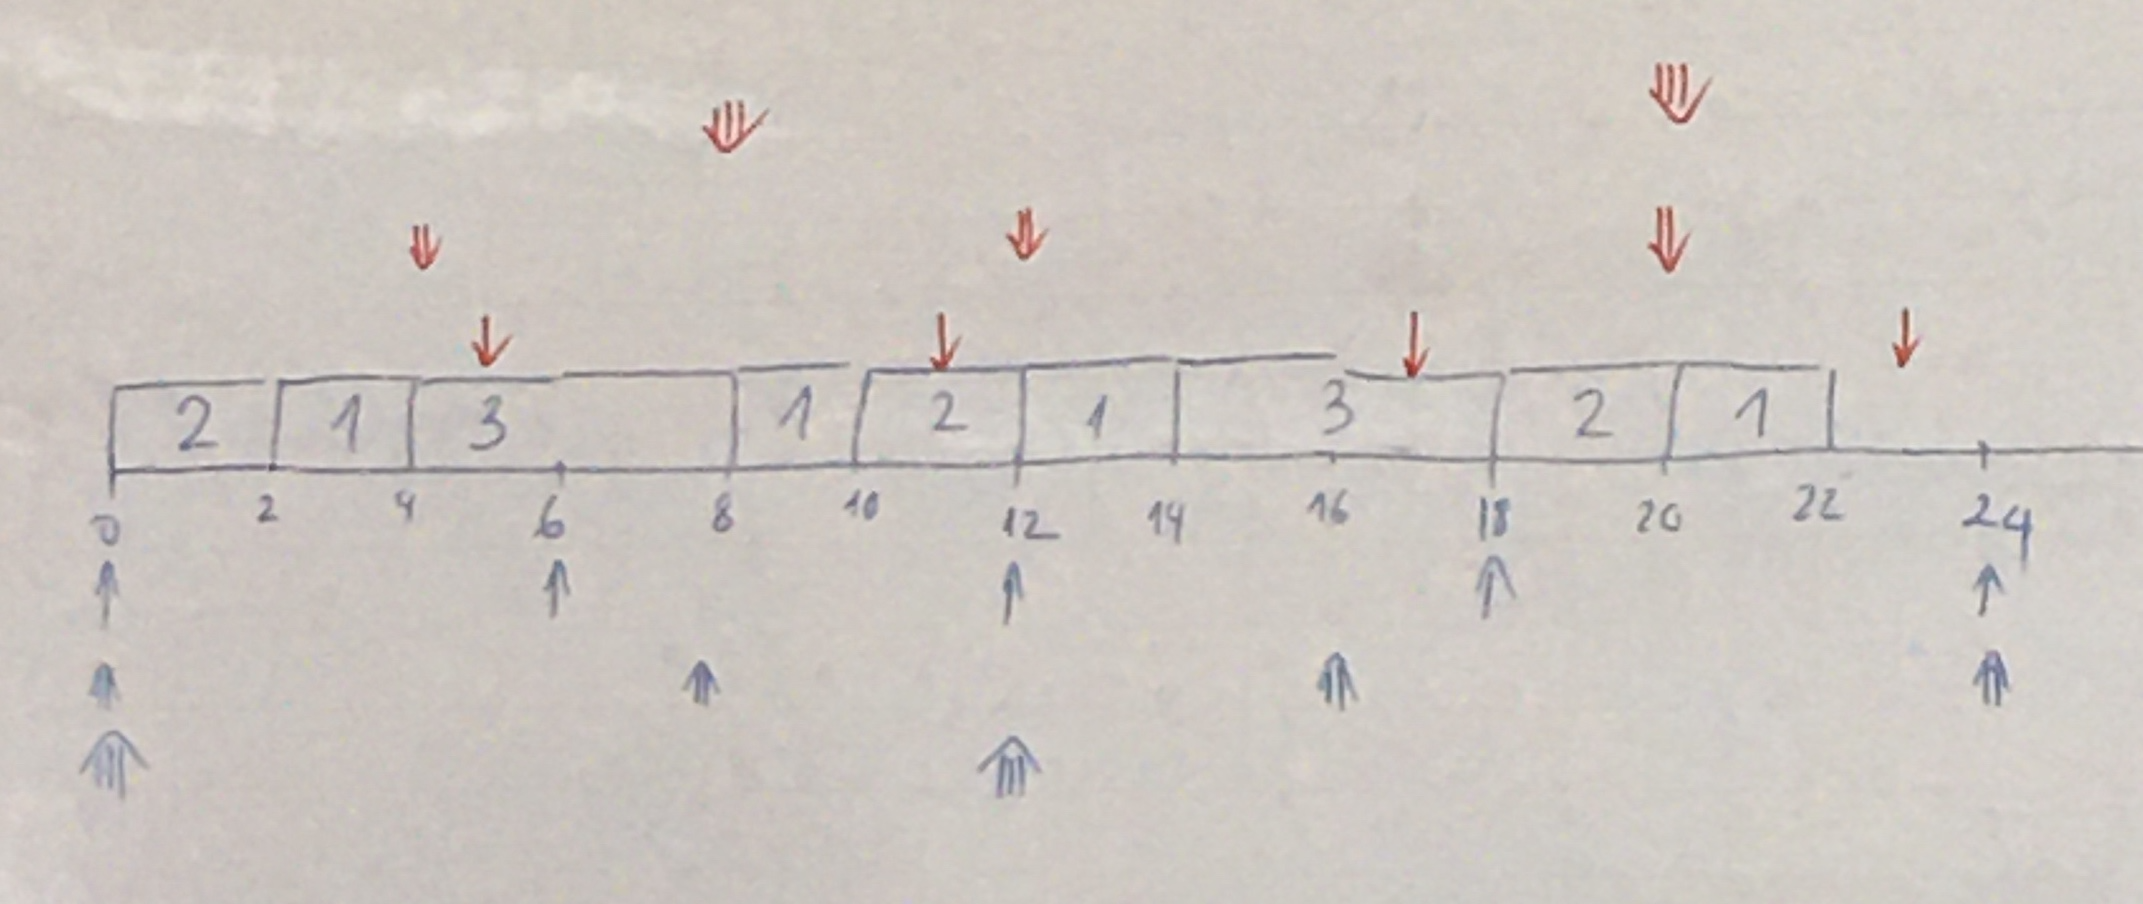 2 1 3 1 2 1 3 2 1
0 2 4 6 8 10 12 14 16 18 20 22 24